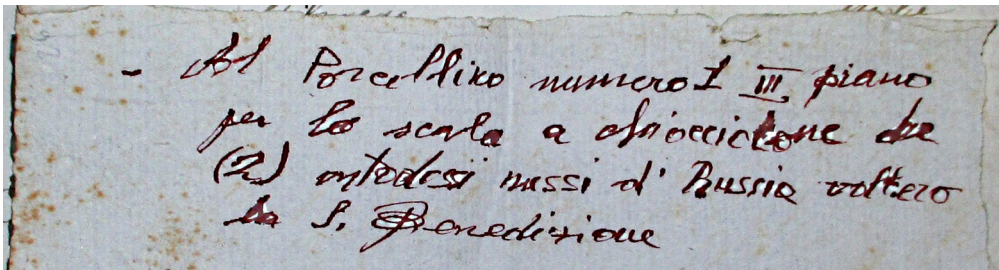 - Al Porcellino numero 1 III piano
per la scala a chiocciolone due
(2) ortodossi russi d' Russia voltero
la S. Benedizione